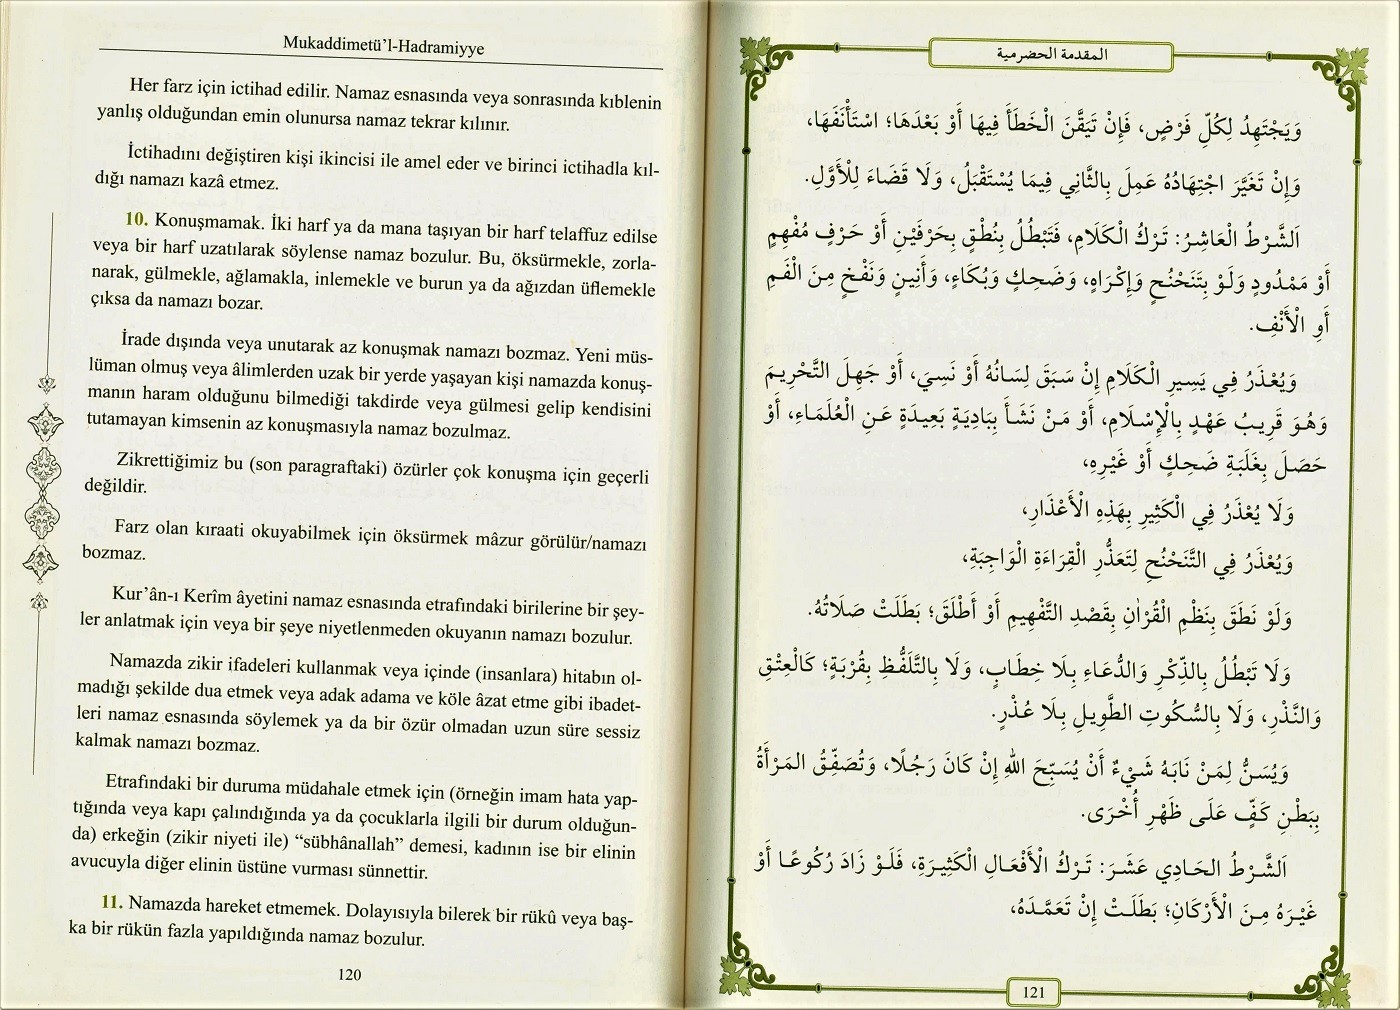 Mukaddimetü’l-Hadramiyye
Her farz için ictihad edilir. Namaz esnasında veya sonrasında kıblenin
yanlış olduğundan emin olunursa namaz tekrar kılınır.
İctihadını değiştiren kişi ikincisi ile amel eder ve birinci ictihadla kıl-
dığı namazı kazâ etmez.
10. Konuşmamak. İki harf ya da mana taşıyan bir harf telaffuz edilse
veya bir harf uzatılarak söylense namaz bozulur. Bu, öksürmekle, zorla-
narak, gülmekle, ağlamakla, inlemekle ve burun ya da ağızdan üflemekle
çıksa da namazı bozar.
İrade dışında veya unutarak az konuşmak namazı bozmaz. Yeni müs-
lüman olmuş veya âlimlerden uzak bir yerde yaşayan kişi namazda konuş-
manın haram olduğunu bilmediği takdirde veya gülmesi gelip kendisini
tutamayan kimsenin az konuşmasıyla namaz bozulmaz.
Zikrettiğimiz bu (son paragraftaki) özürler çok konuşma için geçerli
değildir.
Farz olan kıraati okuyabilmek için öksürmek mâzur görülür/namazı
bozmaz.
Kur’ân-ı Kerîm âyetini namaz esnasında etrafındaki birilerine bir şey-
ler anlatmak için veya bir şeye niyetlenmeden okuyanın namazı bozulur.
Namazda zikir ifadeleri kullanmak veya içinde (insanlara) hitabın ol-
madığı şekilde dua etmek veya adak adama ve köle âzat etme gibi ibadet-
leri namaz esnasında söylemek ya da bir özür olmadan uzun süre sessiz
kalmak namazı bozmaz.
Etrafındaki bir duruma müdahale etmek için (örneğin imam hata yap-
tığında veya kapı çalındığında ya da çocuklarla ilgili bir durum olduğun-
da) erkeğin (zikir niyeti ile) “sübhânallah” demesi, kadının ise bir elinin
avucuyla diğer elinin üstüne vurması sünnettir.
11. Namazda hareket etmemek. Dolayısıyla bilerek bir rükû veya baş-
ka bir rükün fazla yapıldığında namaz bozulur.
120
المقدمة الحضرمية
وَيَجْتَهِدُ لِكُلِّ فَرْضٍ، فَإِنْ تَيَقَّنَ الْخَطَأَ فِيهَا أَوْ بَعْدَهَا؛ اسْتَأْنَفَهَا،
وَإِنْ تَغَيَّرَ اجْتِهَادُهُ عَمِلَ بِالثَّانِي فِيمَا يُسْتَقْبَلُ، وَلَا قَضَاءَ لِلْأَوَّلِ.
اَلشَّرْطُ الْعَاشِرُ: تَرْكُ الْكَلَامِ، فَتَبْطُلُ بِنُطْقٍ بِحَرْفَيْنِ أَوْ حَرْفٍ مُفْهِمٍ
أَوْ مَمْدُودٍ وَلَوْ بِتَنَحْنُحٍ وَإِكْرَاهٍ، وَضَحِكٍ وَبُكَاءٍ، وَأَنِينٍ وَنَفْخٍ مِنَ الْفَمِ
أَوِ الْأَنْفِ.
وَيُعْذَرُ فِي يَسِيرِ الْكَلَامِ إِنْ سَبَقَ لِسَانُهُ أَوْ نَسِيَ، أَوْ جَهِلَ التَّحْرِيمَ
وَهُوَ قَرِيبُ عَهْدٍ بِالْإِسْلَامِ، أَوْ مَنْ نَشَأَ بِبَادِيَةٍ بَعِيدَةٍ عَنِ الْعُلَمَاءِ، أَوْ
حَصَلَ بِغَلَبَةِ ضَحِكٍ أَوْ غَيْرِهِ،
وَلَا يُعْذَرُ فِي الْكَثِيرِ بِهَذِهِ الْأَعْذَارِ،
وَيُعْذَرُ فِي التَّنَحْنُحِ لِتَعَذُّرِ الْقِرَاءَةِ الْوَاجِبَةِ،
وَلَوْ نَطَقَ بِنَظْمِ الْقُرْاٰنِ بِقَصْدِ التَّفْهِيمِ أَوْ أَطْلَقَ؛ بَطَلَتْ صَلَاتُهُ.
وَلَا تَبْطُلُ بِالذِّكْرِ وَالدُّعَاءِ بِلَا خِطَابٍ، وَلَا بِالتَّلَفُّظِ بِقُرْبَةٍ؛ كَالْعِتْقِ
وَالنَّذْرِ، وَلَا بِالسُّكُوتِ الطَّوِيلِ بِلَا عُذْرٍ.
وَيُسَنُّ لِمَنْ نَابَهُ شَيْءٌ أَنْ يُسَبِّحَ اللهَ إِنْ كَانَ رَجُلًا، وَتُصَفِّقُ المَرْأَةُ
بِبَطْنِ كَفٍّ عَلَى ظَهْرِ أُخْرَى.
اَلشَّرْطُ الحَادِي عَشَرَ: تَرْكُ الْأَفْعَالِ الْكَثِيرَةِ، فَلَوْ زَادَ رُكُوعًا أَوْ
غَيْرَهُ مِنَ الْأَرْكَانِ؛ بَطَلَتْ إِنْ تَعَمَّدَهُ،
121